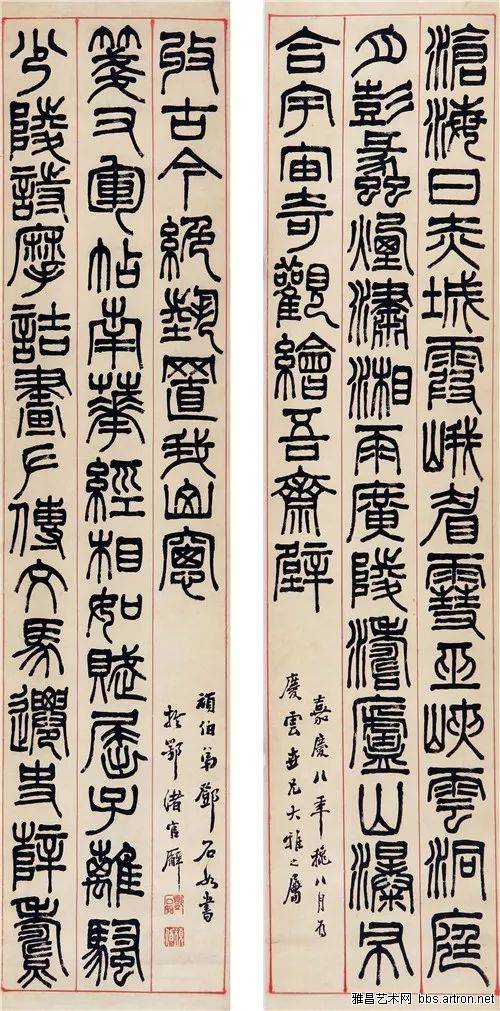 滄海日赤城霞峨眉雪巫峽雲洞庭
月彭蠡煙瀟湘雨廣陵濤廬山瀑布
合宇宙奇觀繪吾齋壁
嘉慶八年穐八月為
慶雲世兄大雅之屬
少陵詩摩詰畫左傳文馬遷史薛濤
箋右軍帖南華經相如賦屈子離騷
收古今絕藝置我山窗
頑伯弟鄧石如書
於鄂渚官廨
雅昌艺术网 bbs.artron.net